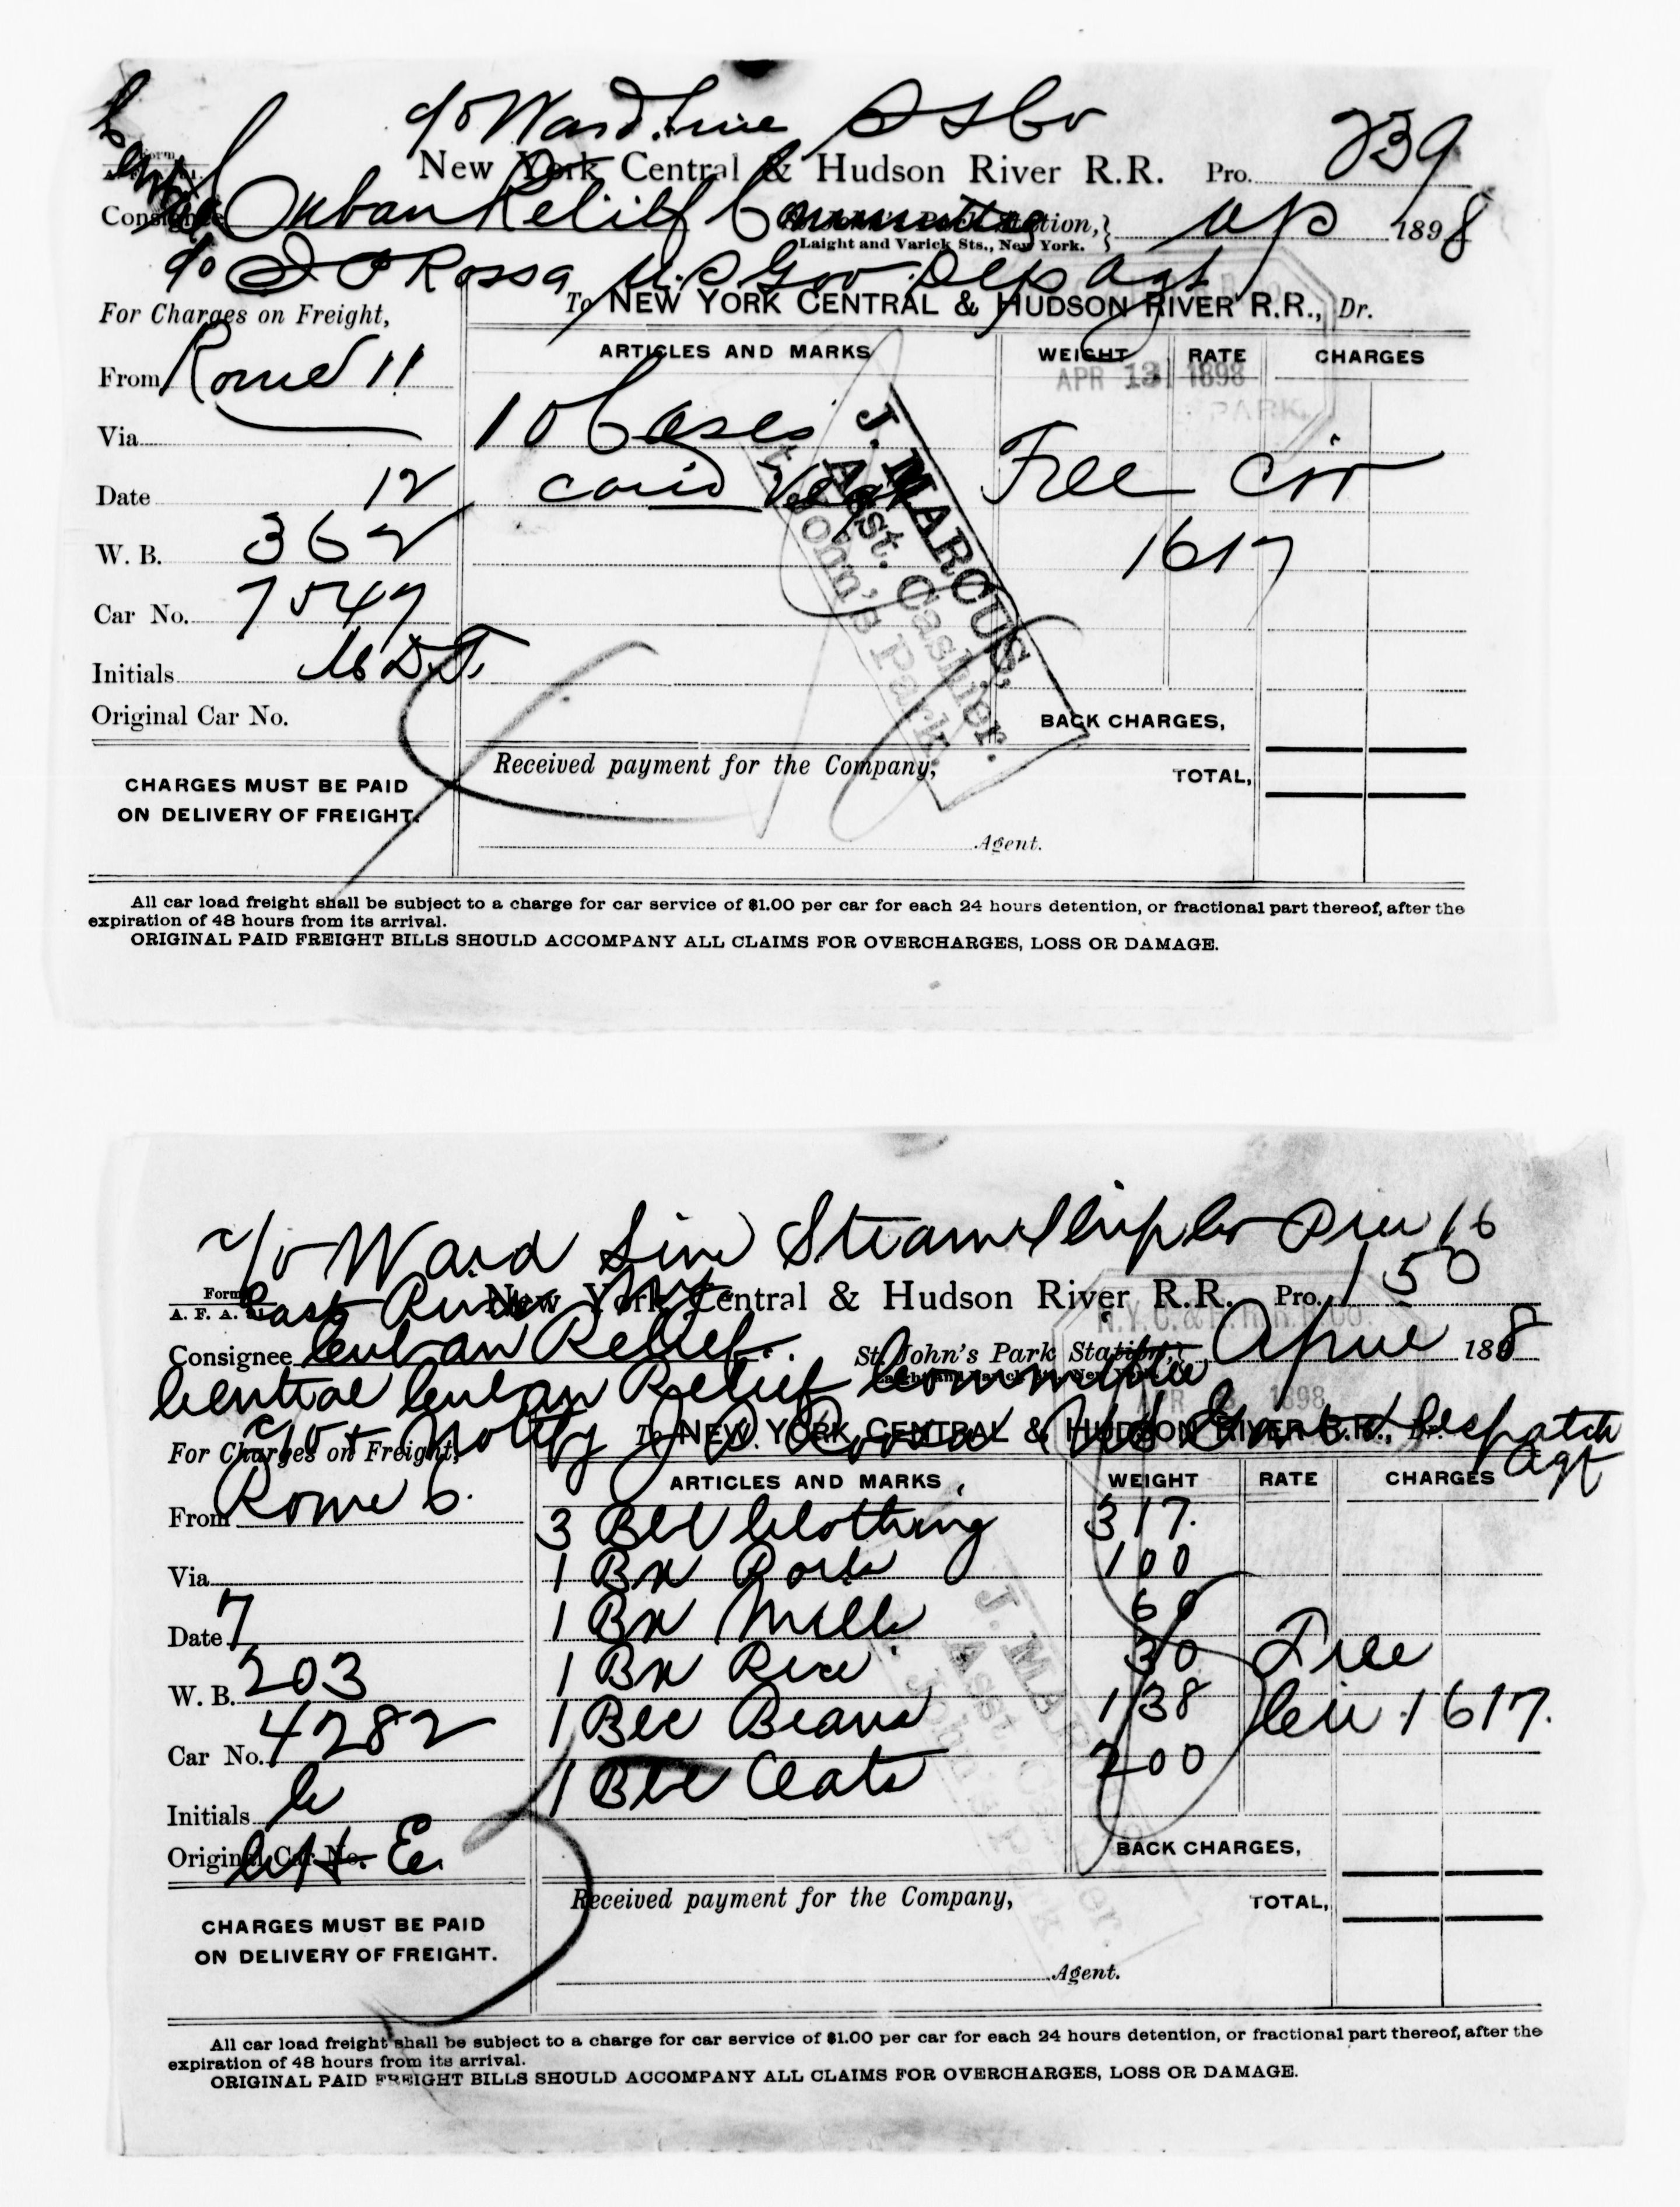 c/o Ward Line S S Co
New York Central & Hudson River R.R. Pro. 239
Form
Consignee Cuban Relief Committee Station, Ap 1898
Laight and Varick Sts., New York.
c/o Rossa U.S. Gov. Desp Agt
For Charges on Freight,
To NEW YORK CENTRAL & HUDSON RIVER R.R., Dr.
ARTICLES AND MARKS WEIGHT RATE CHARGES
APR 13 1898
PARK
From Rome 11
10 Cases
Via
Free Cir
Date 12
1617
W. B. 362
Car No. 7547
Initials M D T
J. MARCUS,
Asst. Cashier.
St. John's Park.
Original Car No.
BACK CHARGES,
Received payment for the Company,
TOTAL,
CHARGES MUST BE PAID
ON DELIVERY OF FREIGHT.
Agent.
All car load freight shall be subject to a charge for car service of $1.00 per car for each 24 hours detention, or fractional part thereof, after the
expiration of 48 hours from its arrival.
ORIGINAL PAID FREIGHT BILLS SHOULD ACCOMPANY ALL CLAIMS FOR OVERCHARGES, LOSS OR DAMAGE.
c/o Ward Line Steam Ship Co Pier 16
East River NY
Form
A. F. A.
New York Central & Hudson River R.R. Pro. 150
N.Y.C. & H.R.R.R. Co.
Consignee Cuban Relief St. John's Park Station, April 1898
Central Cuban Relief Committee
APR 1898
c/o + Notify Despatch Agt
For Charges on Freight,
To NEW YORK CENTRAL & HUDSON RIVER R.R., Dr.
ARTICLES AND MARKS WEIGHT RATE CHARGES
From Rome 6.
3 Bbl Clothing 317.
1 Bx Pork 100
Via
1 Bx Milk 60
Date 7
1 Bx Rice 30 Free
W. B. 203
1 Bbl Beans 138 Cir. 1617.
Car No. 4282
1 Bbl Oats 200
Initials
Original Car No.
J. MARCUS,
Asst. Cashier.
St. John's Park
BACK CHARGES,
Received payment for the Company,
TOTAL,
CHARGES MUST BE PAID
ON DELIVERY OF FREIGHT.
Agent.
All car load freight shall be subject to a charge for car service of $1.00 per car for each 24 hours detention, or fractional part thereof, after the
expiration of 48 hours from its arrival.
ORIGINAL PAID FREIGHT BILLS SHOULD ACCOMPANY ALL CLAIMS FOR OVERCHARGES, LOSS OR DAMAGE.